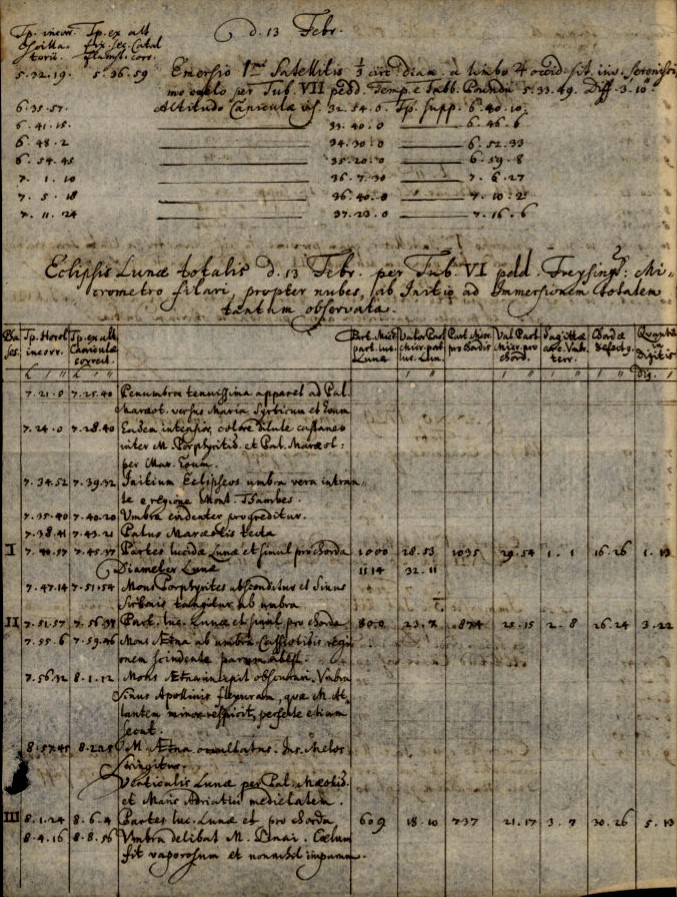 d. 13 Febr.
Tp. incorr. Tp. ex alt
fix. sec. Catal
Flamst. corr.
5. 32. 19. 5. 36. 59 Emersio 1mi Satellitis 1/3 circ. diam. a limbo ♃ occid. sit. inv. Serenissi
mo coelo per Tub. VII pedd. Temp. e Tabb. 5. 33. 49. Diff. 3. 10
6. 35. 57. Altitudo Caniculae 32. 54. 0. Tp. supp. 6. 40. 10
6. 41. 15. 33. 40. 0 6. 46. 6
6. 48. 2 34. 30. 0 6. 52. 33
6. 54. 45 35. 20. 0 6. 59. 8
7. 1. 10 36. 7. 30 7. 6. 27
7. 5. 18 36. 40. 0 7. 10. 21
7. 11. 24 37. 23. 0 7. 16. 6
Eclipsis Lunae totalis d. 13 Febr. per Tub. VI pedd. Freysing: Mi=
crometro filari, propter nubes, ab Initio ad Immersionem totalem
tantum observata.
Pha Tp. Horol Tp. ex alt Part. Micr Valor Part Part. Micr. Val. Part Sagittae Chordae Quantit.
ses. incorr. Caniculae part. luc. Micr. part. pro chordis Micr. pro arc. Umb. defectus. in
correct. Lunae luc. Lun. chord. terr. Digitis
Dig. ı
7. 21. 0 7. 25. 40 Penumbra tenuissima apparet ad Pal.
Maraeot. versus Maria Syrticum et Eoum
7. 24. 0 7. 28. 40 Eadem intensior, colore dilute castaneo
inter M. Porphyritid. et Pal. Maraeot:
per Mar. Eoum.
7. 34. 52 7. 39. 32 Initium Eclipseos umbra vera intran
te e regione Mont.
7. 35. 40 7. 40. 20 Umbra evidenter progreditur.
7. 38. 41 7. 43. 21 Palus Maraeotis tecta
I 7. 40. 57 7. 45. 37 Partes lucidae Lunae et simul pro chorda 1000 28. 53 1035 29. 54 1. 1 16. 26 1. 13
Diameter Lunae 1114 32. 11
7. 47. 14 7. 51. 54 Mons Porphyrites absconditur et Sinus
Sirbonis tangitur ab umbra
II 7. 51. 57 7. 56. 37 Part. luc. Lunae et simul pro chorda 800 23. 7 874 25. 15 2. 8 26. 24 3. 22
7. 55. 6 7. 59. 46 Mons Aetna ab umbra regi
onem scindente parum abest.
7. 56. 32 8. 1. 12 Mons Aetna incipit obscurari, Umbra
Sinus Apollinis flexuram, quae M. At=
lantem minorem respicit, perfecte etiam
secat.
8. 57. 45 8. 2. 25 M. Aetna occultatur. Ins. Melos
stringitur.
Verticalis Lunae per Pal. Maeotid.
et Maris Adriatici medietatem.
III 8. 1. 24 8. 6. 4 Partes luc. Lunae et pro chorda 609 18. 10 737 21. 17 3. 7 30. 26 5. 13
8. 4. 16 8. 8. 56 Umbra delibat M. Sinai. Coelum
fit vaporosum et nonnihil impurum.